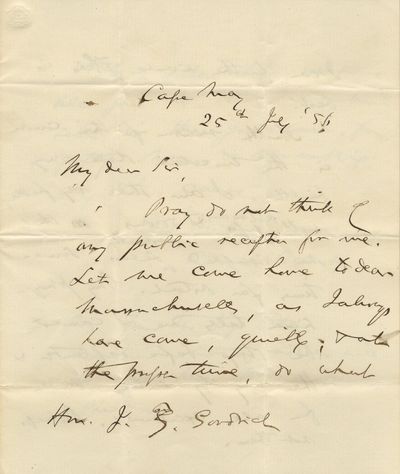 Cape May
25th July '56
My dear Sir,
Pray do not think of
any public reception for me.
Let me come home to dear
Massachusetts, as I always
have come, quietly, & at
the proper time, do what
Hon. J. Z. Goodrich